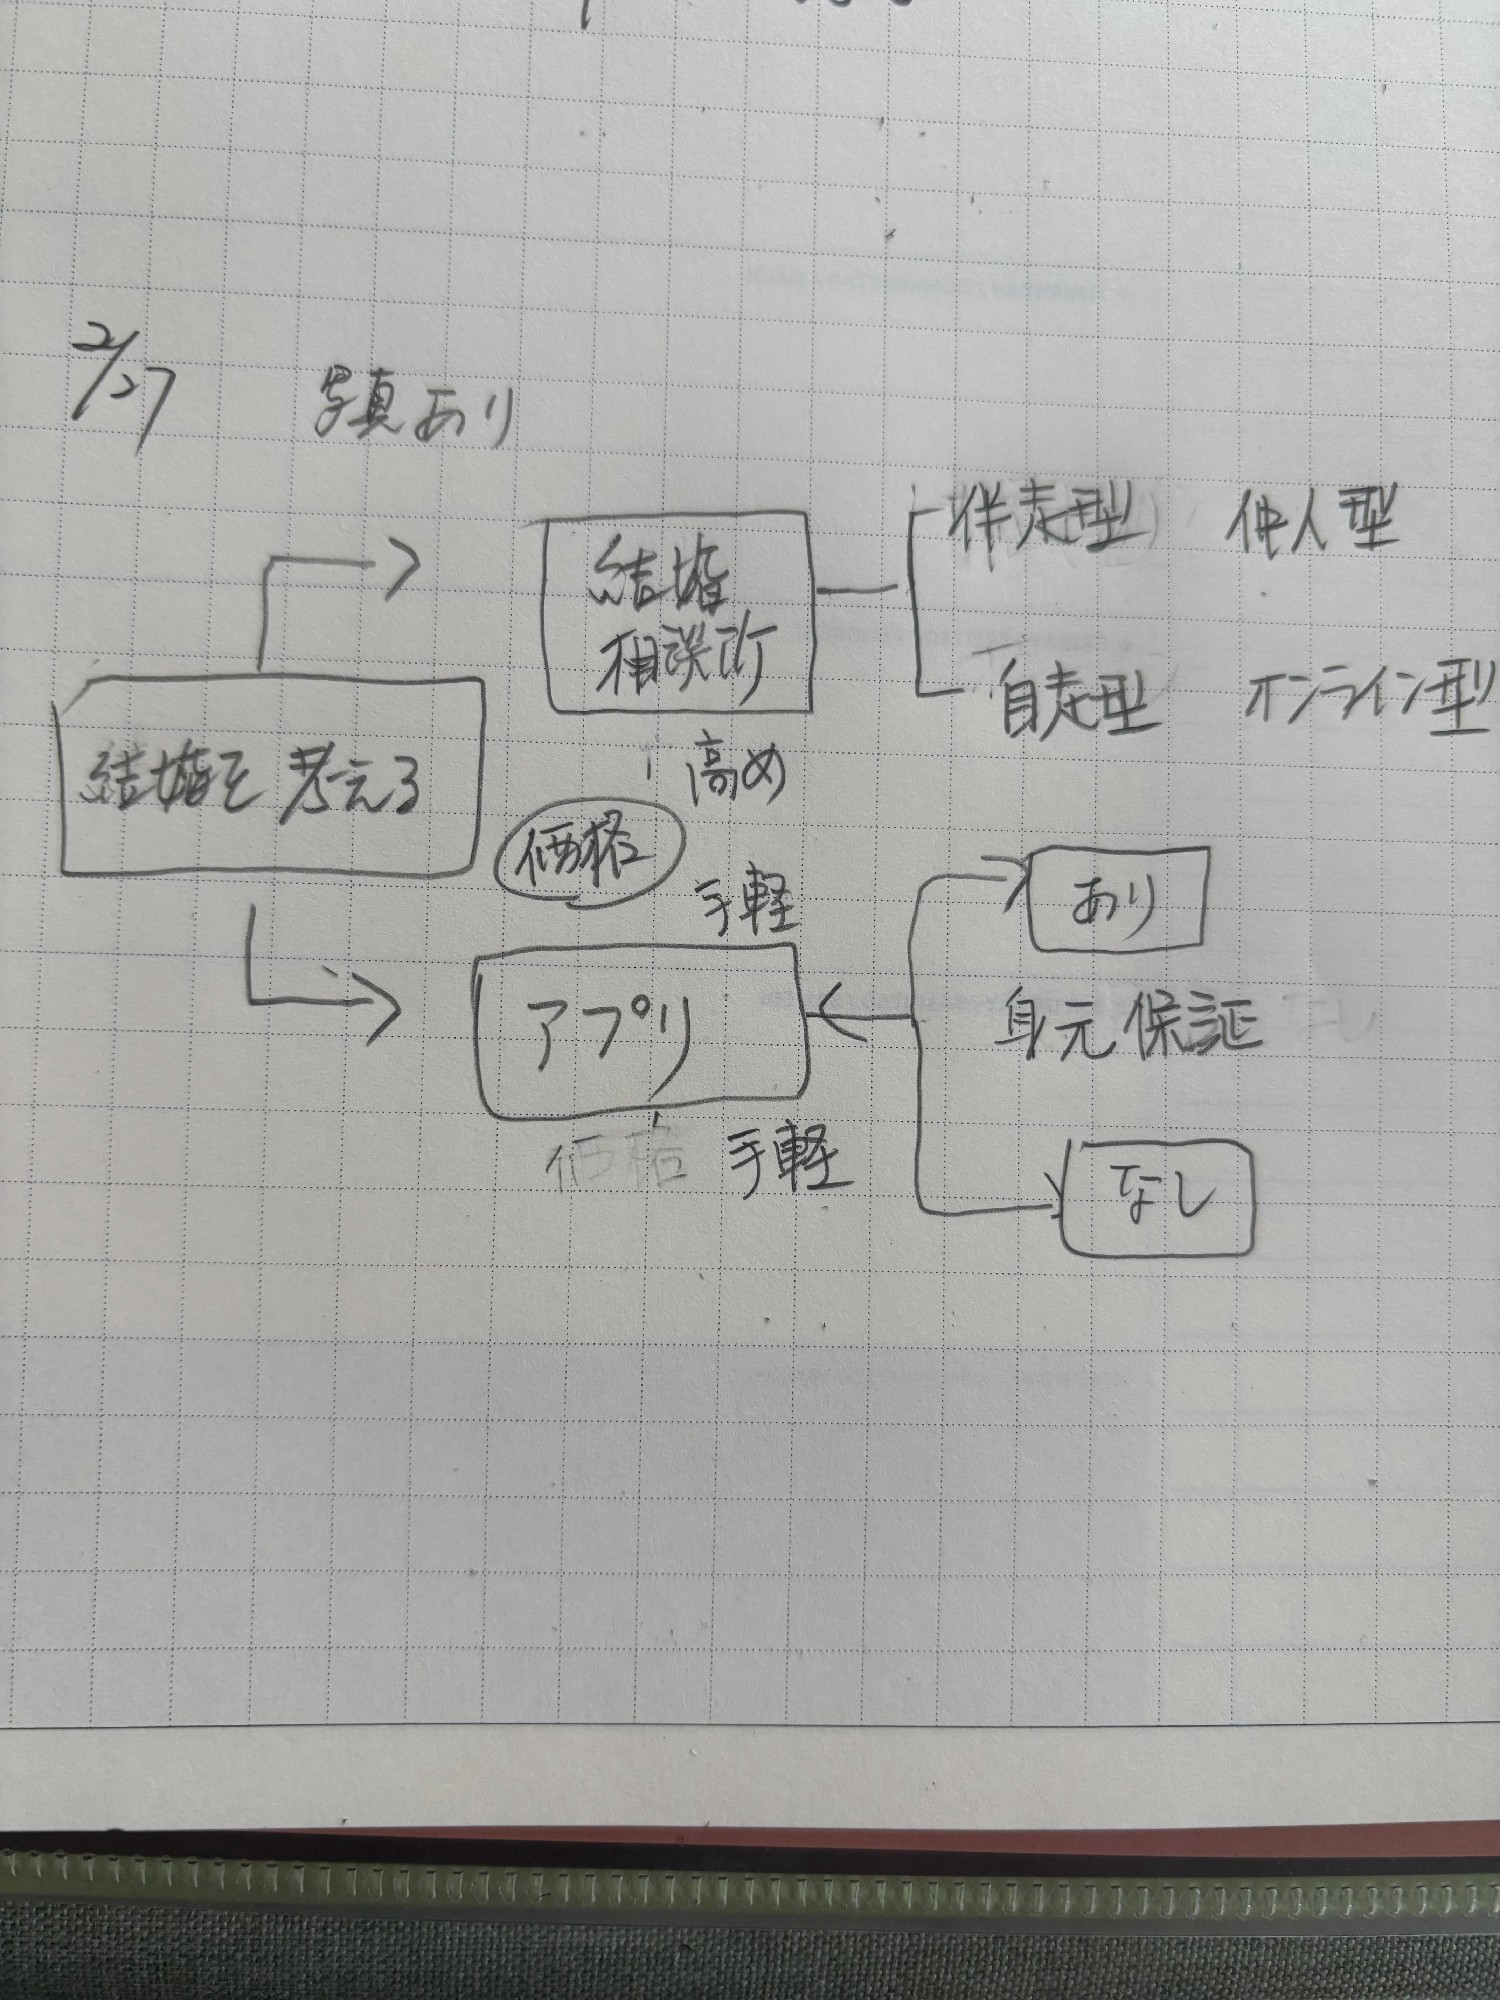 2/27 写真あり
結婚を考える
結婚
相談所
伴走型 仲人型
自走型 オンライン型
高め
価格
手軽
アプリ
価格 手軽
あり
身元保証
なし